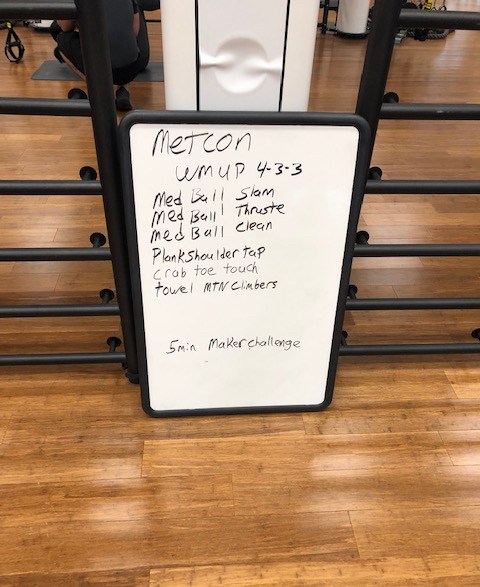 Metcon
WMUP 4-3-3
Med Ball Slam
Med Ball Thruste
Med Ball Clean
Plank Shoulder tap
Crab toe touch
towel MTN Climbers
5min Maker challenge